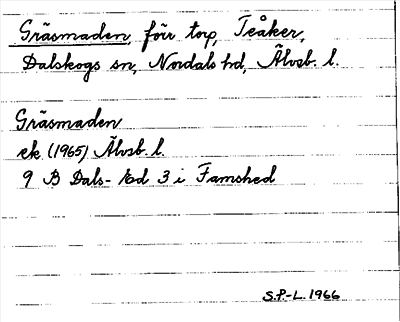 Gräsmaden, förr torp, Teåker,
Dalskogs sn, Nordals hd, Älvsb. l.
Gräsmaden
ek. (1965) Älvsb. l.
9 B Dals-Ed 3 i Famshed
S.P.-L. 1966